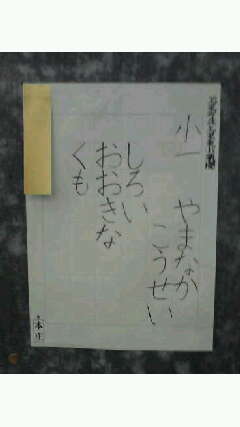 小一 やまなか
こうせい
しろい
おおきな
くも